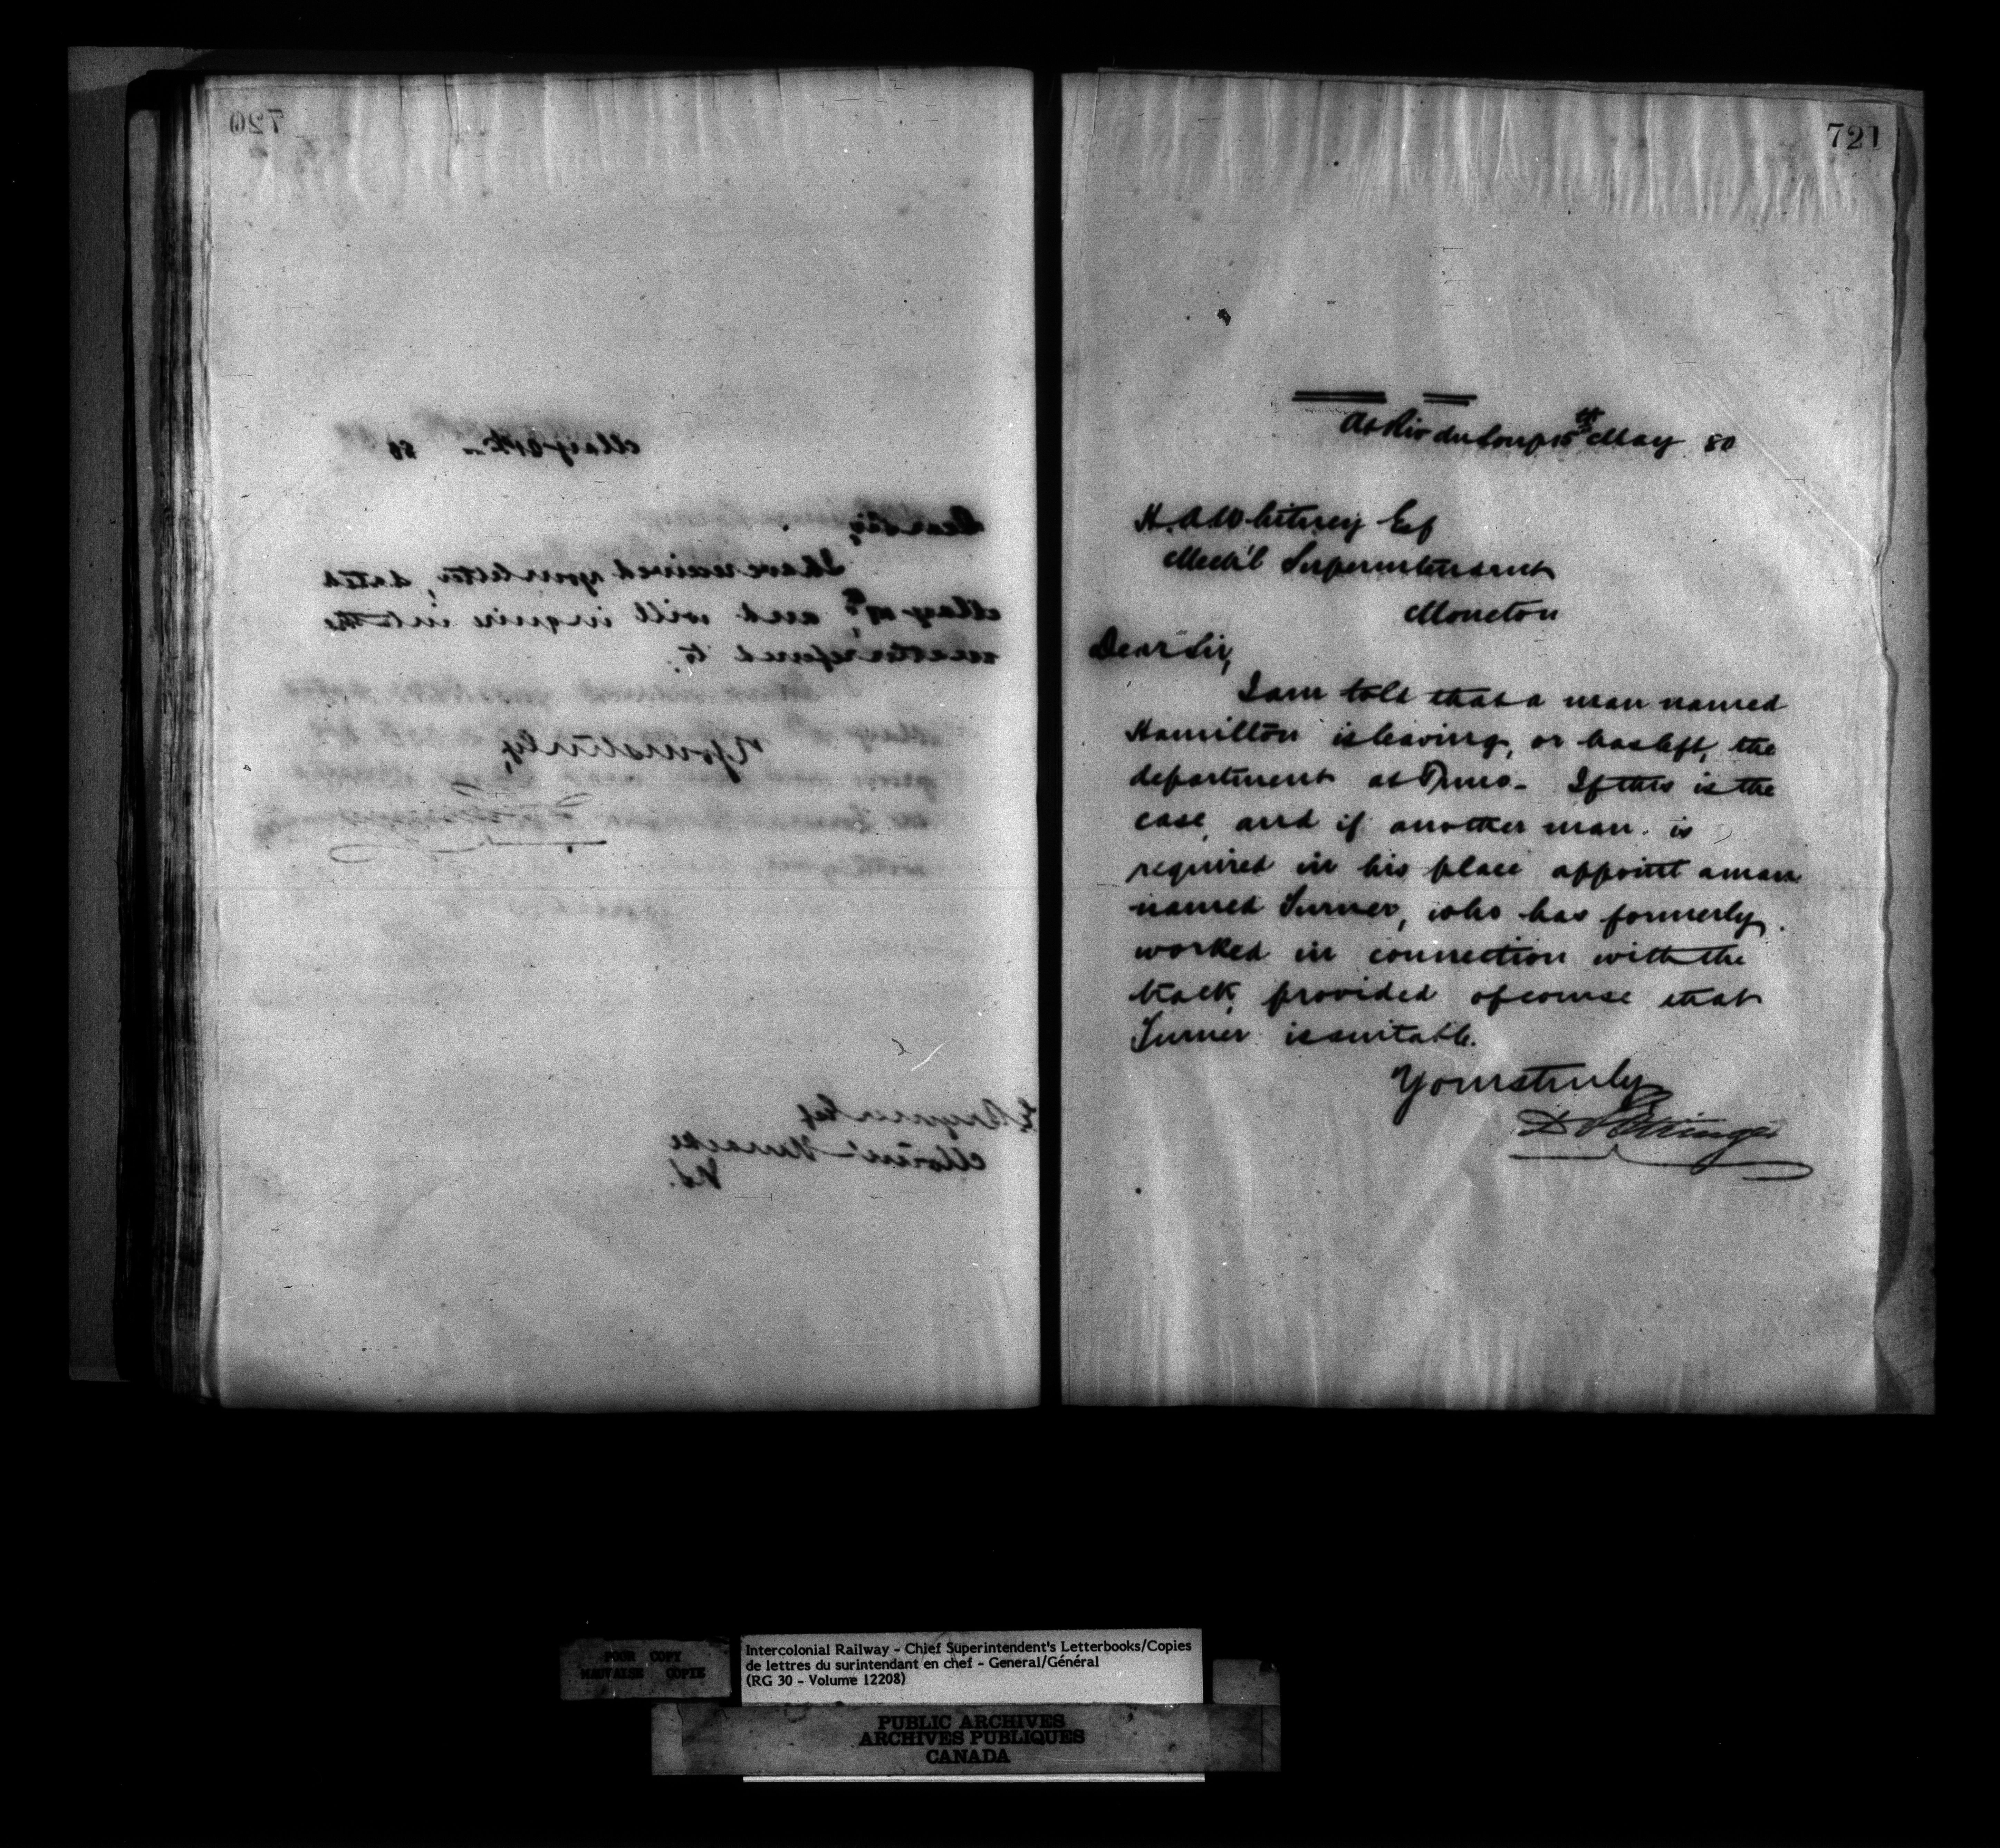 720
May 21st 80
Dear Sir,
I have received your letter, dated
May 19th, and will inquire into the
matter referred to.
Yours truly,
721
At Riv du Loup 15th May 80
H. A. Whitney Esq
Mech'l Superintendent
Moncton
Dear Sir,
I am told that a man named
Hamilton is leaving, or has left, the
department at Truro. If this is the
case, and if another man is
required in his place appoint a man
named Turner, who has formerly
worked in connection with the
track, provided of course that
Turner is suitable.
Yours truly
D Pottinger
POOR COPY
MAUVAISE COPIE
Intercolonial Railway - Chief Superintendent's Letterbooks/Copies
de lettres du surintendant en chef - General/Général
(RG 30 - Volume 12208)
PUBLIC ARCHIVES
ARCHIVES PUBLIQUES
CANADA